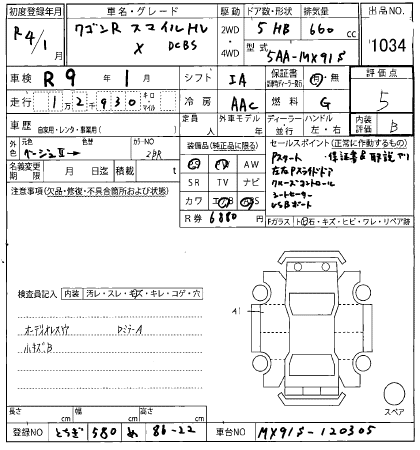 初度登録年月
R4/1
車名・グレード
ワゴンR スマイル HV
X DCBS
駆動
2WD
4WD
ドア数・形状
5 HB
排気量
660 cc
型式
5AA-MX91S
出品NO.
1034
車検 R 9 年 1 月
シフト IA
保証書
有・無
評価点
5
走行 1 2 9 3 0 キロ・マイル
冷房 AAC
燃料 G
車歴 自家用・レンタ・事業用( )
定員 人
外車モデル 年
ディーラー 並行
ハンドル 左・右
内装評価 B
外色
元色
ベージュⅡ→
色替
カラーNO
2BR
装備品(純正品に限る)
AW
SR TV ナビ
カワ
R券 6880 円
セールスポイント(正常に作動するもの)
Pスタート ・保証書&取説アリ
左右Pスライドドア
クルーズコントロール
シートヒーター
USBポート
名義変更期限 月 日迄
積載 t
注意事項(欠品・修復・不具合箇所および状態)
Fガラス トビ石・キズ・ヒビ・ワレ・リペア跡
検査員記入 内装 汚レ・スレ・キズ・キレ・コゲ・穴
オーディオレスヤケ
小キズB
A1
スペア
長さ cm
幅 cm
高さ cm
登録NO とちぎ 580 め 86-22
車台NO MX91S-120305